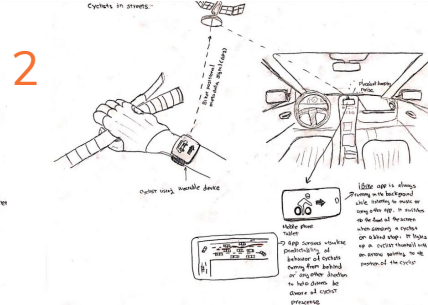 Cyclists in streets
2
Biker positional
metadata signal (GPS)
Physical buzzing
noise
cyclist using wearable device
Mobile phone
Tablet
→ app services visualize
predictability of
behavior of cyclists
coming from behind
or any other direction
to help drivers be
aware of cyclist
presense
iBike app is always
running in the background
while listening to music or
any other app. It switches
to the front of the screen
when sensing a cyclist
on a blind stop. It lights
up a cyclist thumbnail with
an arrow pointing to the
position of the cyclist